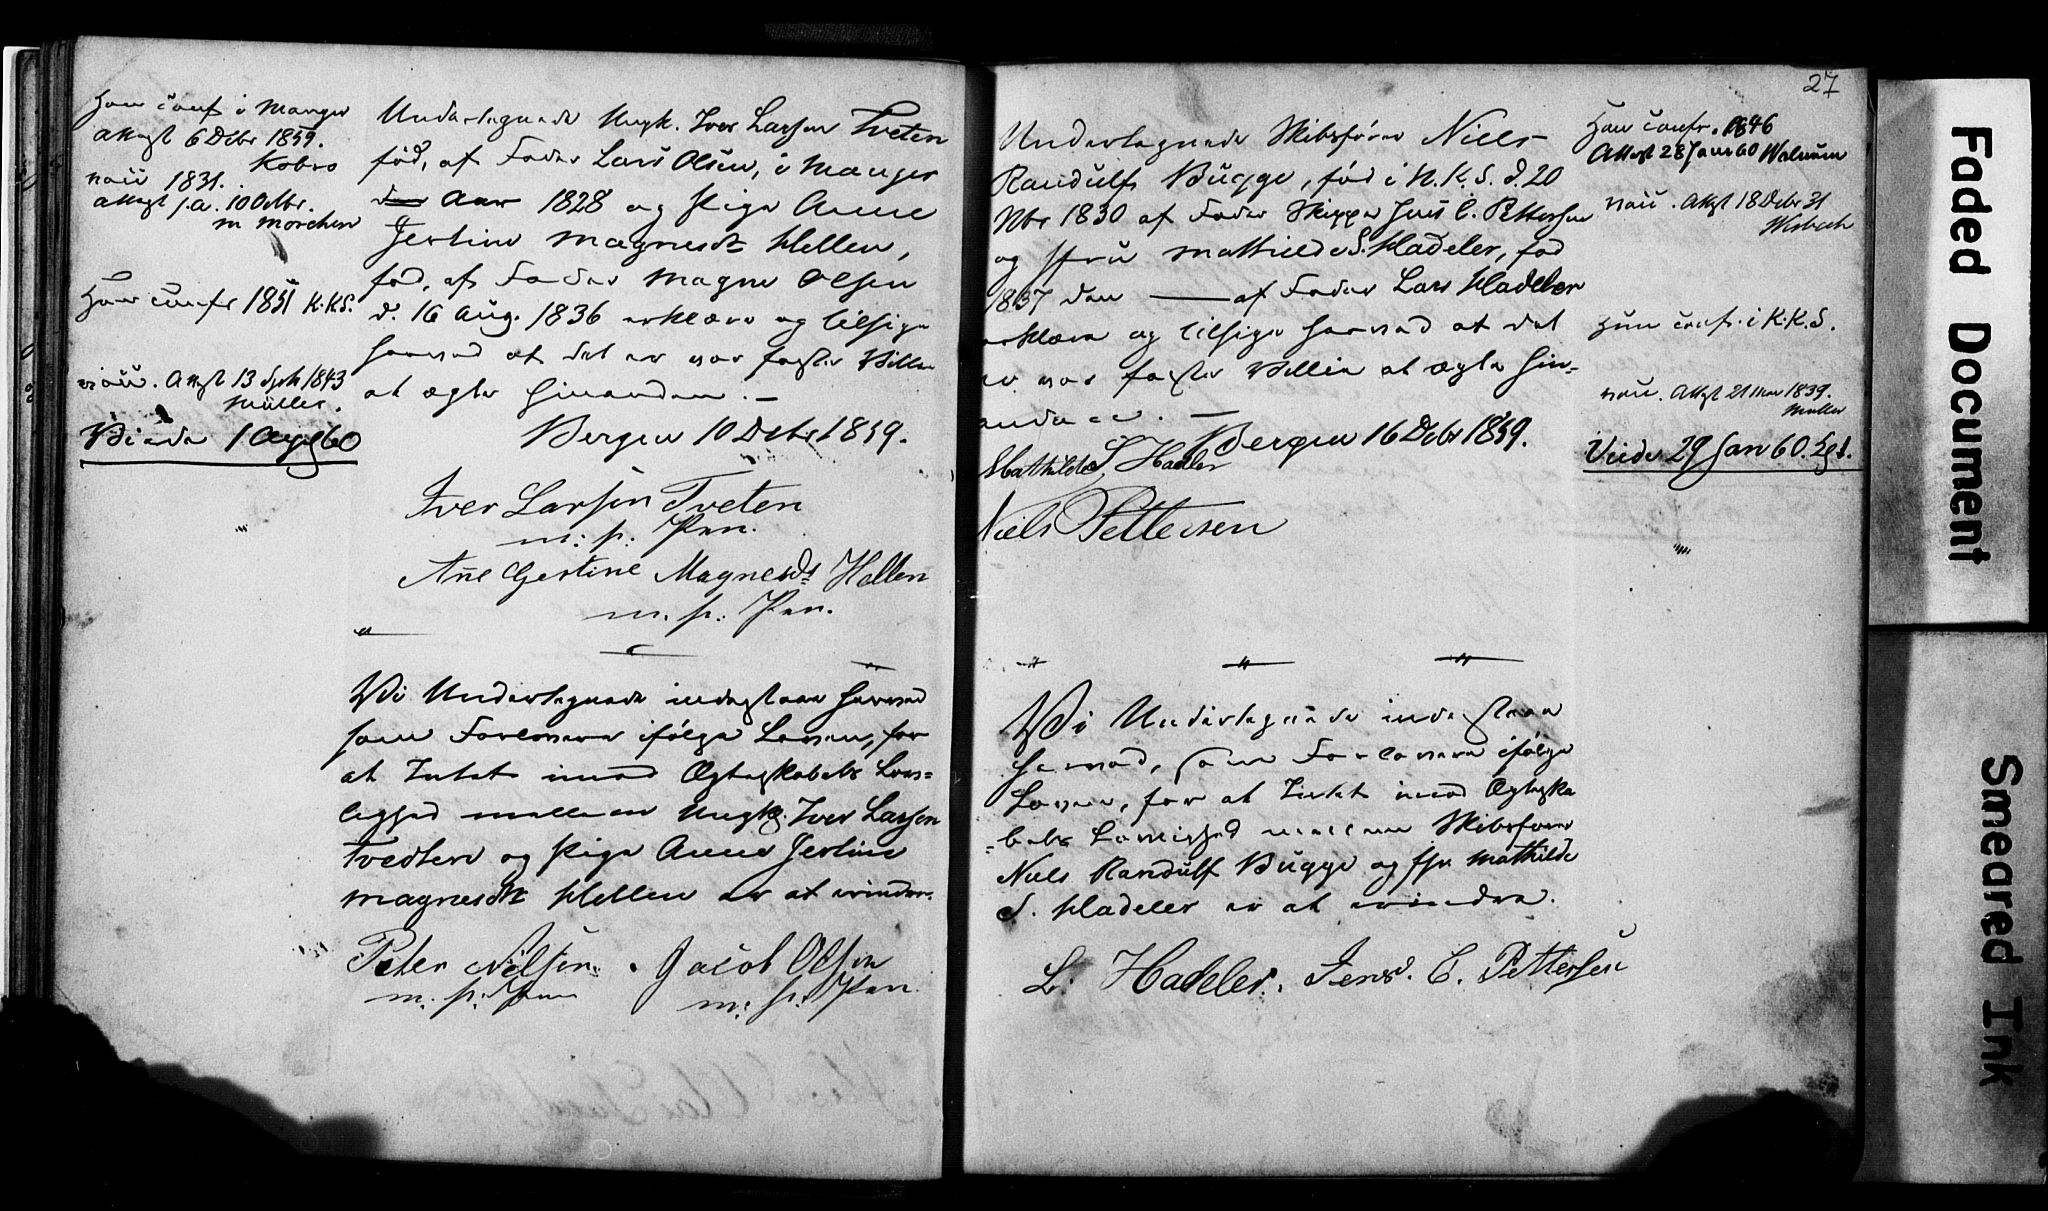 Han conf i Manger
Attest 6 Debr 1859.
Kobro
vacc 1831.
Attest s.a. 10 Octbr.
m Mörchen
Hun confr 1851 K.K.S.
vacc. Attst 13 Septr 1843
Müller.
Viede 1 Aug 60
Undertegnede Ungk. Iver Larsen Tveten
fød, af Fader Lars Olsen, i Manger
Aar 1828 og Pige Anne
Gertine Magnesdtr Hellen,
fød, af Fader Magne Olsen
d. 16 Aug. 1836 erklære og tilsige
herved at det er vor faste Villie
at ægte hinanden. —
Bergen 10 Debr 1859.
Iver Larsen Tveten
m: p: Pen.
Ane Gertine Magnesds Hellen
m. p. Pen.
Vi Undertegnede indestaae herved
som Forlovere ifølge Loven, for
at Intet imod Ægteskabets Lov=
lighed mellem Ungk. Iver Larsen
Tvedten og Pige Anne Gertine
Magnesdtr Hellen er at erindre.
Peter Nilsen. Jacob Olsen
m. p. Pen m: p: Pen.
27
Undertegnede Skibsfører Niels
Randulf Bugge, fød i N.K.S. d. 20
Nbr 1830 af Fader Skipper Jens C. Pettersen
og Jfru Mathilde S. Hadeler, fød
1837 den — af Fader Lars Hadeler
erklære og tilsige herved at det
er vor faste Villie at ægte hin=
anden. —
Bergen 16 Debr 1859.
Mathilde S. Hadler
Niels Pettersen
Han confr. 1846
Attest 28 Janr 60 Walnum
vacc. Attst 18 Debr 31
Wisbech
Hun confr. i K.K.S.
vacc. Attst 21 Mai 1839.
Müller
Viede 29 Jan 60.
Vi Undertegnede indestaae
herved, som Forlovere ifølge
Loven, for at Intet imod Ægteska
=bets Lovlighed mellem Skibsfører
Niels Randulf Bugge og Jfr. Mathilde
S. Hadeler er at erindre.
L. Hadeler. Jens. C. Pettersen
Faded Document
Smeared Ink